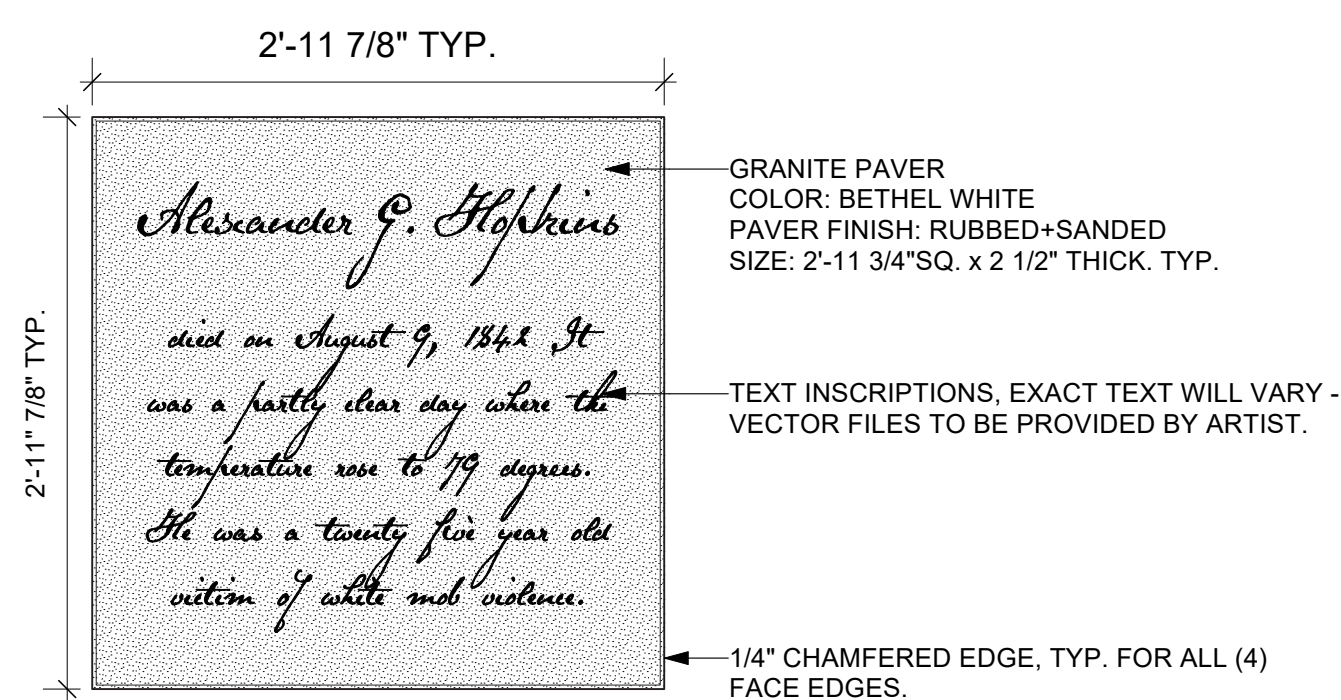 2'-11 7/8" TYP.
2'-11" 7/8" TYP.
Alexander G. Hopkins
died on August 9, 1842 It
was a partly clear day where the
temperature rose to 79 degrees.
He was a twenty five year old
victim of white mob violence.
GRANITE PAVER
COLOR: BETHEL WHITE
PAVER FINISH: RUBBED+SANDED
SIZE: 2'-11 3/4"SQ. x 2 1/2" THICK. TYP.
TEXT INSCRIPTIONS, EXACT TEXT WILL VARY -
VECTOR FILES TO BE PROVIDED BY ARTIST.
1/4" CHAMFERED EDGE, TYP. FOR ALL (4)
FACE EDGES.